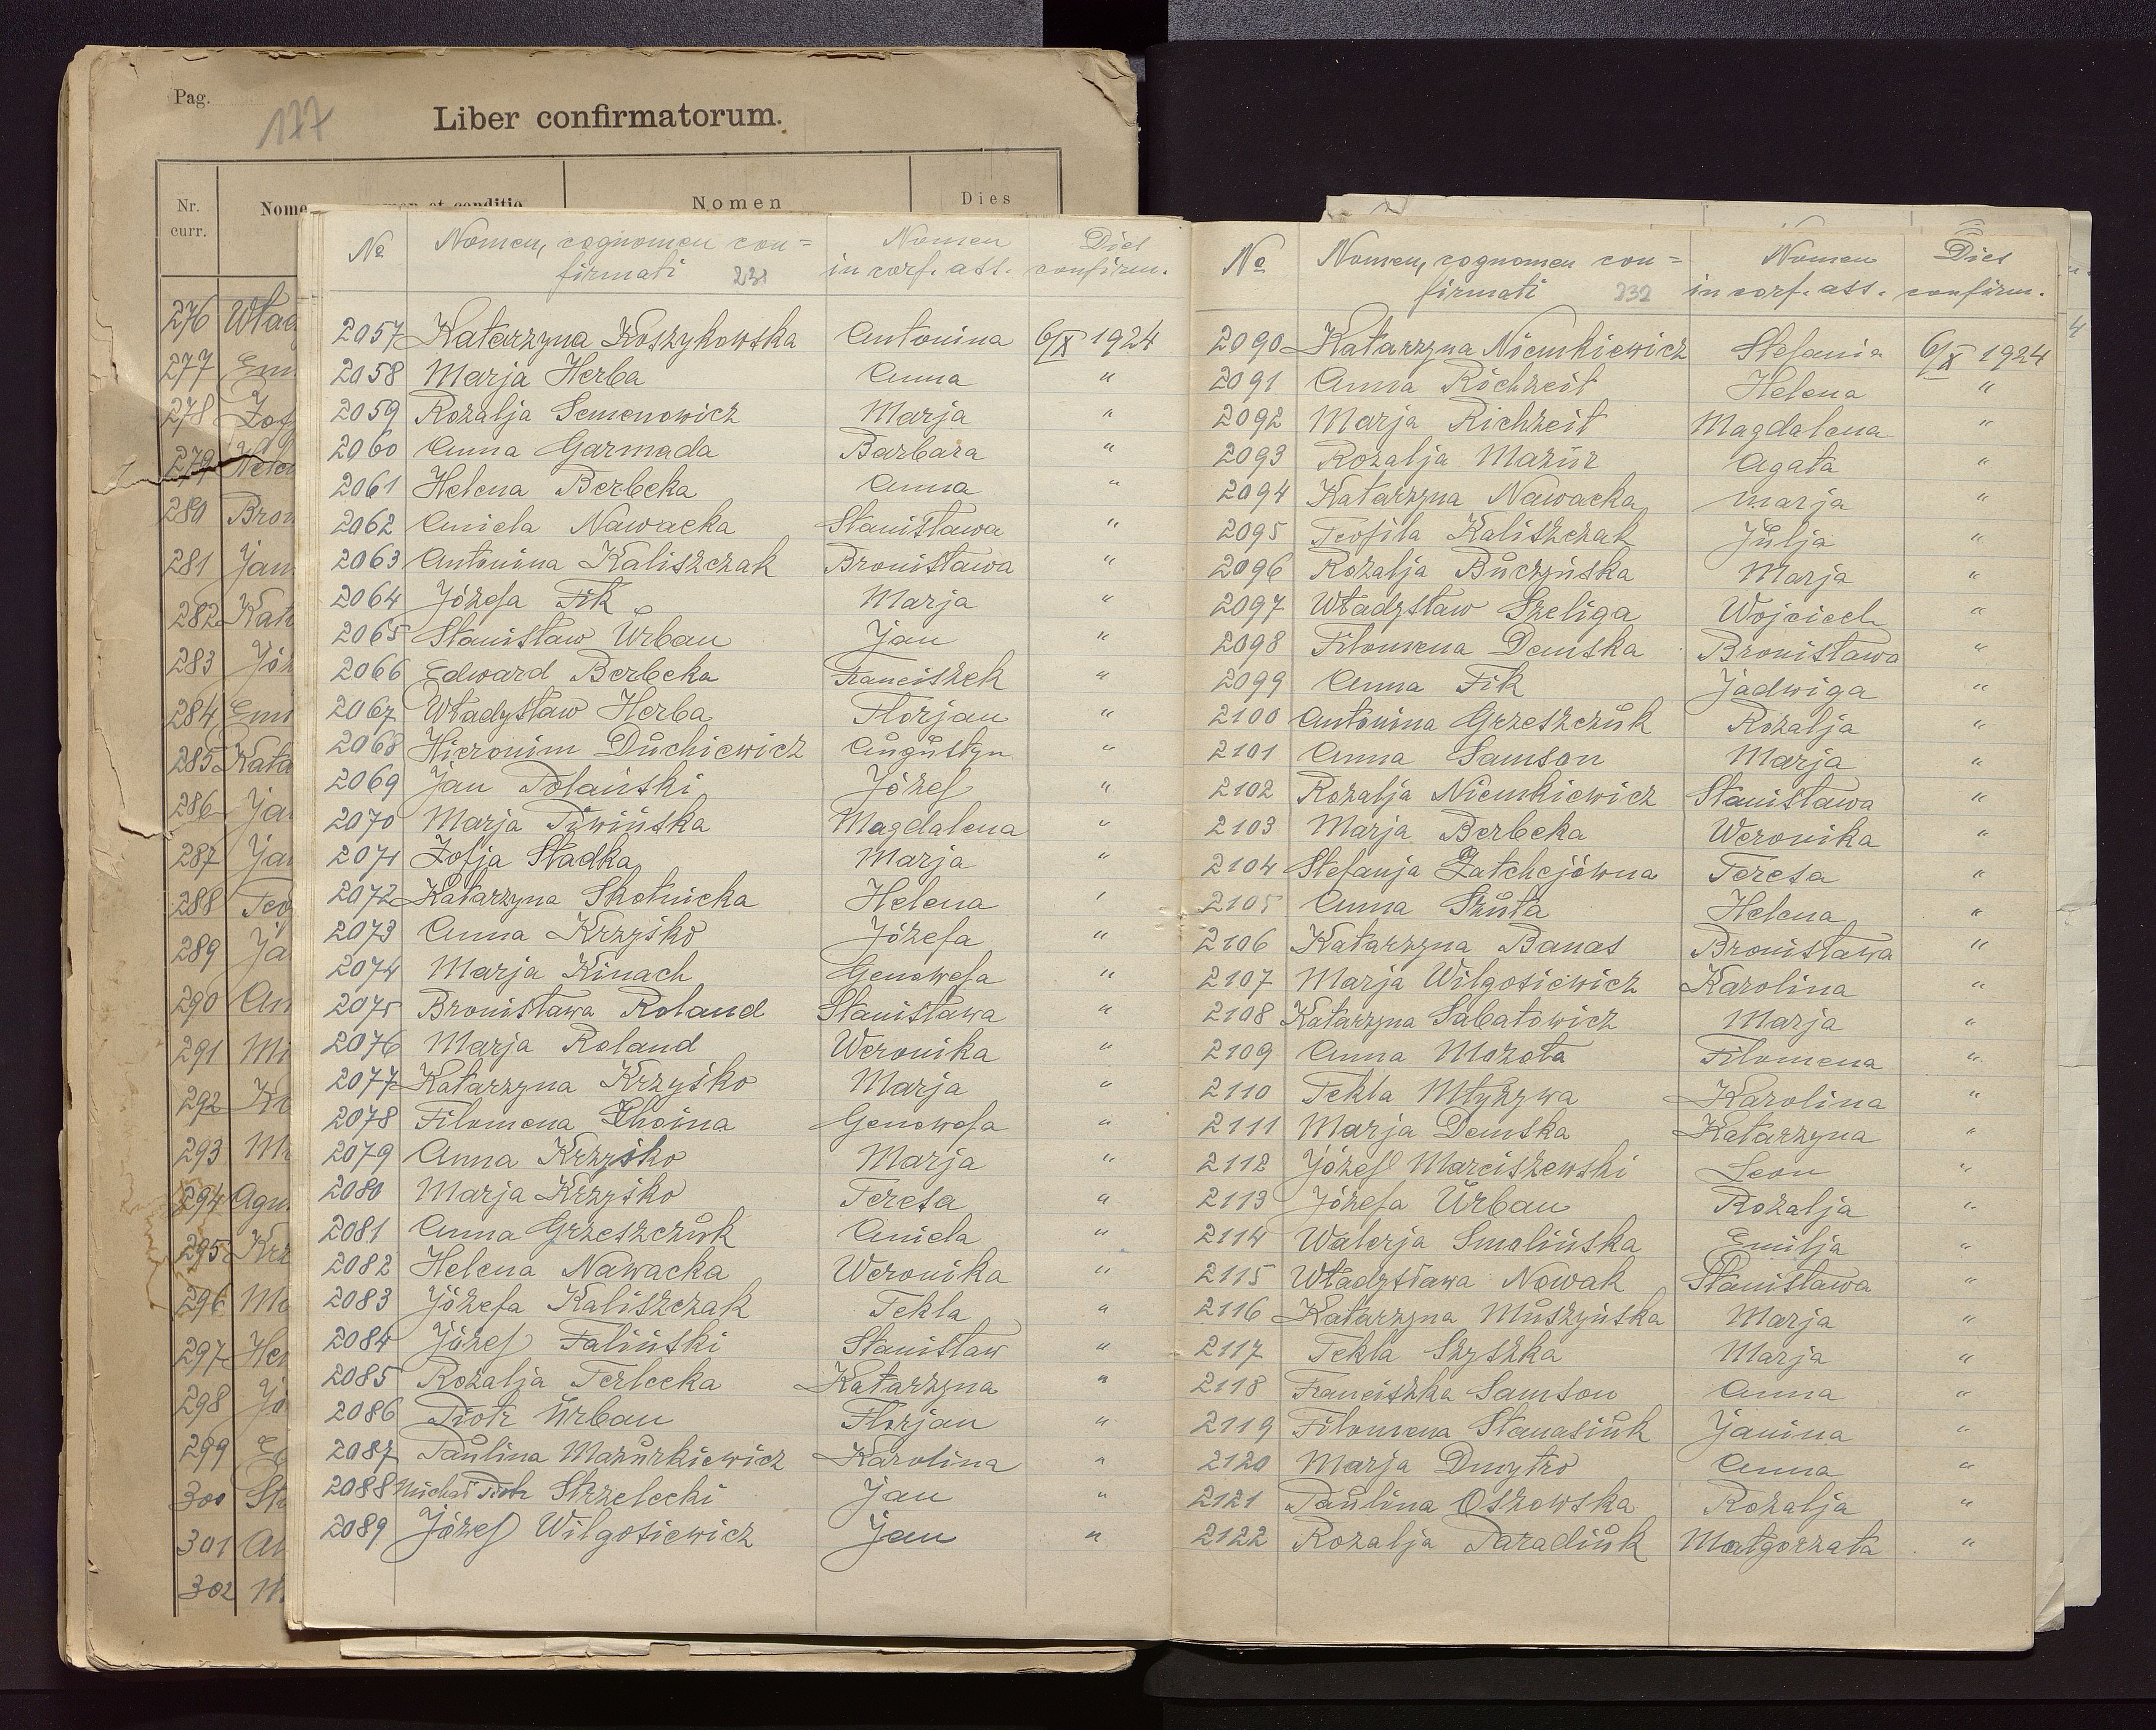 Pag.
177
Liber confirmatorum.
Nr. curr.
Nomen
Dies
276 Wład
277 Em
278 Zof
279 Hele
280 Bron
281 Jan
282 Kat
283 Józ
284 Emi
285 Kata
286 Ja
287 Jan
288 Teo
289 Ja
290 An
291 Mi
292 Ko
293 Ma
294 Agn
295 Krz
296 Ma
297 Hen
298 Jó
299 Ed
300 St
301 An
302 M
№ Nomen, cognomen con= Nomen Dies
firmati 231 in conf. ass. confirm.
2057 Katarzyna Koszykowska Antonina 6/X 1924
2058 Marja Herba Anna "
2059 Rozalja Semenowicz Marja "
2060 Anna Garmada Barbara "
2061 Helena Berbeka Anna "
2062 Aniela Nawacka Stanisława "
2063 Antonina Kaliszczak Bronisława "
2064 Józefa Fik Marja "
2065 Stanisław Urban Jan "
2066 Edward Berbeka Franciszek "
2067 Władysław Herba Florjan "
2068 Hieronim Duchiewicz Augustyn "
2069 Jan Polański Józef "
2070 Marja Piwińska Magdalena "
2071 Zofja Sładka Marja "
2072 Katarzyna Skotnicka Helena "
2073 Anna Krzyśko Józefa "
2074 Marja Kinach Genowefa "
2075 Bronisława Roland Stanisława "
2076 Marja Roland Weronika "
2077 Katarzyna Krzyśko Marja "
2078 Filomena Choina Genowefa "
2079 Anna Krzyśko Marja "
2080 Marja Krzyśko Teresa "
2081 Anna Grzeszczuk Aniela "
2082 Helena Nawacka Weronika "
2083 Józefa Kaliszczak Tekla "
2084 Józef Faliński Stanisław "
2085 Rozalja Terlecka Katarzyna "
2086 Piotr Urban Florjan "
2087 Paulina Mazurkiewicz Karolina "
2088 Michał Piotr Strzelecki Jan "
2089 Józef Wilgosiewicz Jan "
№ Nomen, cognomen con= Nomen Dies
firmati 232 in conf. ass. confirm.
2090 Katarzyna Niemkiewicz Stefania 6/X 1924
2091 Anna Richzeit Helena "
2092 Marja Richzeit Magdalena "
2093 Rozalja Mazur Agata "
2094 Katarzyna Nawacka Marja "
2095 Teofila Kaliszczak Julja "
2096 Rozalja Buczyńska Marja "
2097 Władysław Szeliga Wojciech "
2098 Filomena Demska Bronisława "
2099 Anna Fik Jadwiga "
2100 Antonina Grzeszczuk Rozalja "
2101 Anna Samson Marja "
2102 Rozalja Niemkiewicz Stanisława "
2103 Marja Berbeka Weronika "
2104 Stefanja Zatchejówna Teresa "
2105 Anna Szuta Helena "
2106 Katarzyna Banas Bronisława "
2107 Marja Wilgosiewicz Karolina "
2108 Katarzyna Sabatowicz Marja "
2109 Anna Mozoła Filomena "
2110 Tekla Młyzywa Karolina "
2111 Marja Demska Katarzyna "
2112 Józef Marciszewski Leon "
2113 Józefa Urban Rozalja "
2114 Walerja Smolińska Emilja "
2115 Władysława Nowak Stanisława "
2116 Katarzyna Muszyńska Marja "
2117 Tekla Szyszka Marja "
2118 Franciszka Samson Anna "
2119 Filomena Stanasiuk Janina "
2120 Marja Dmytro Anna "
2121 Paulina Oszowska Rozalja "
2122 Rozalja Paradiuk Małgorzata "